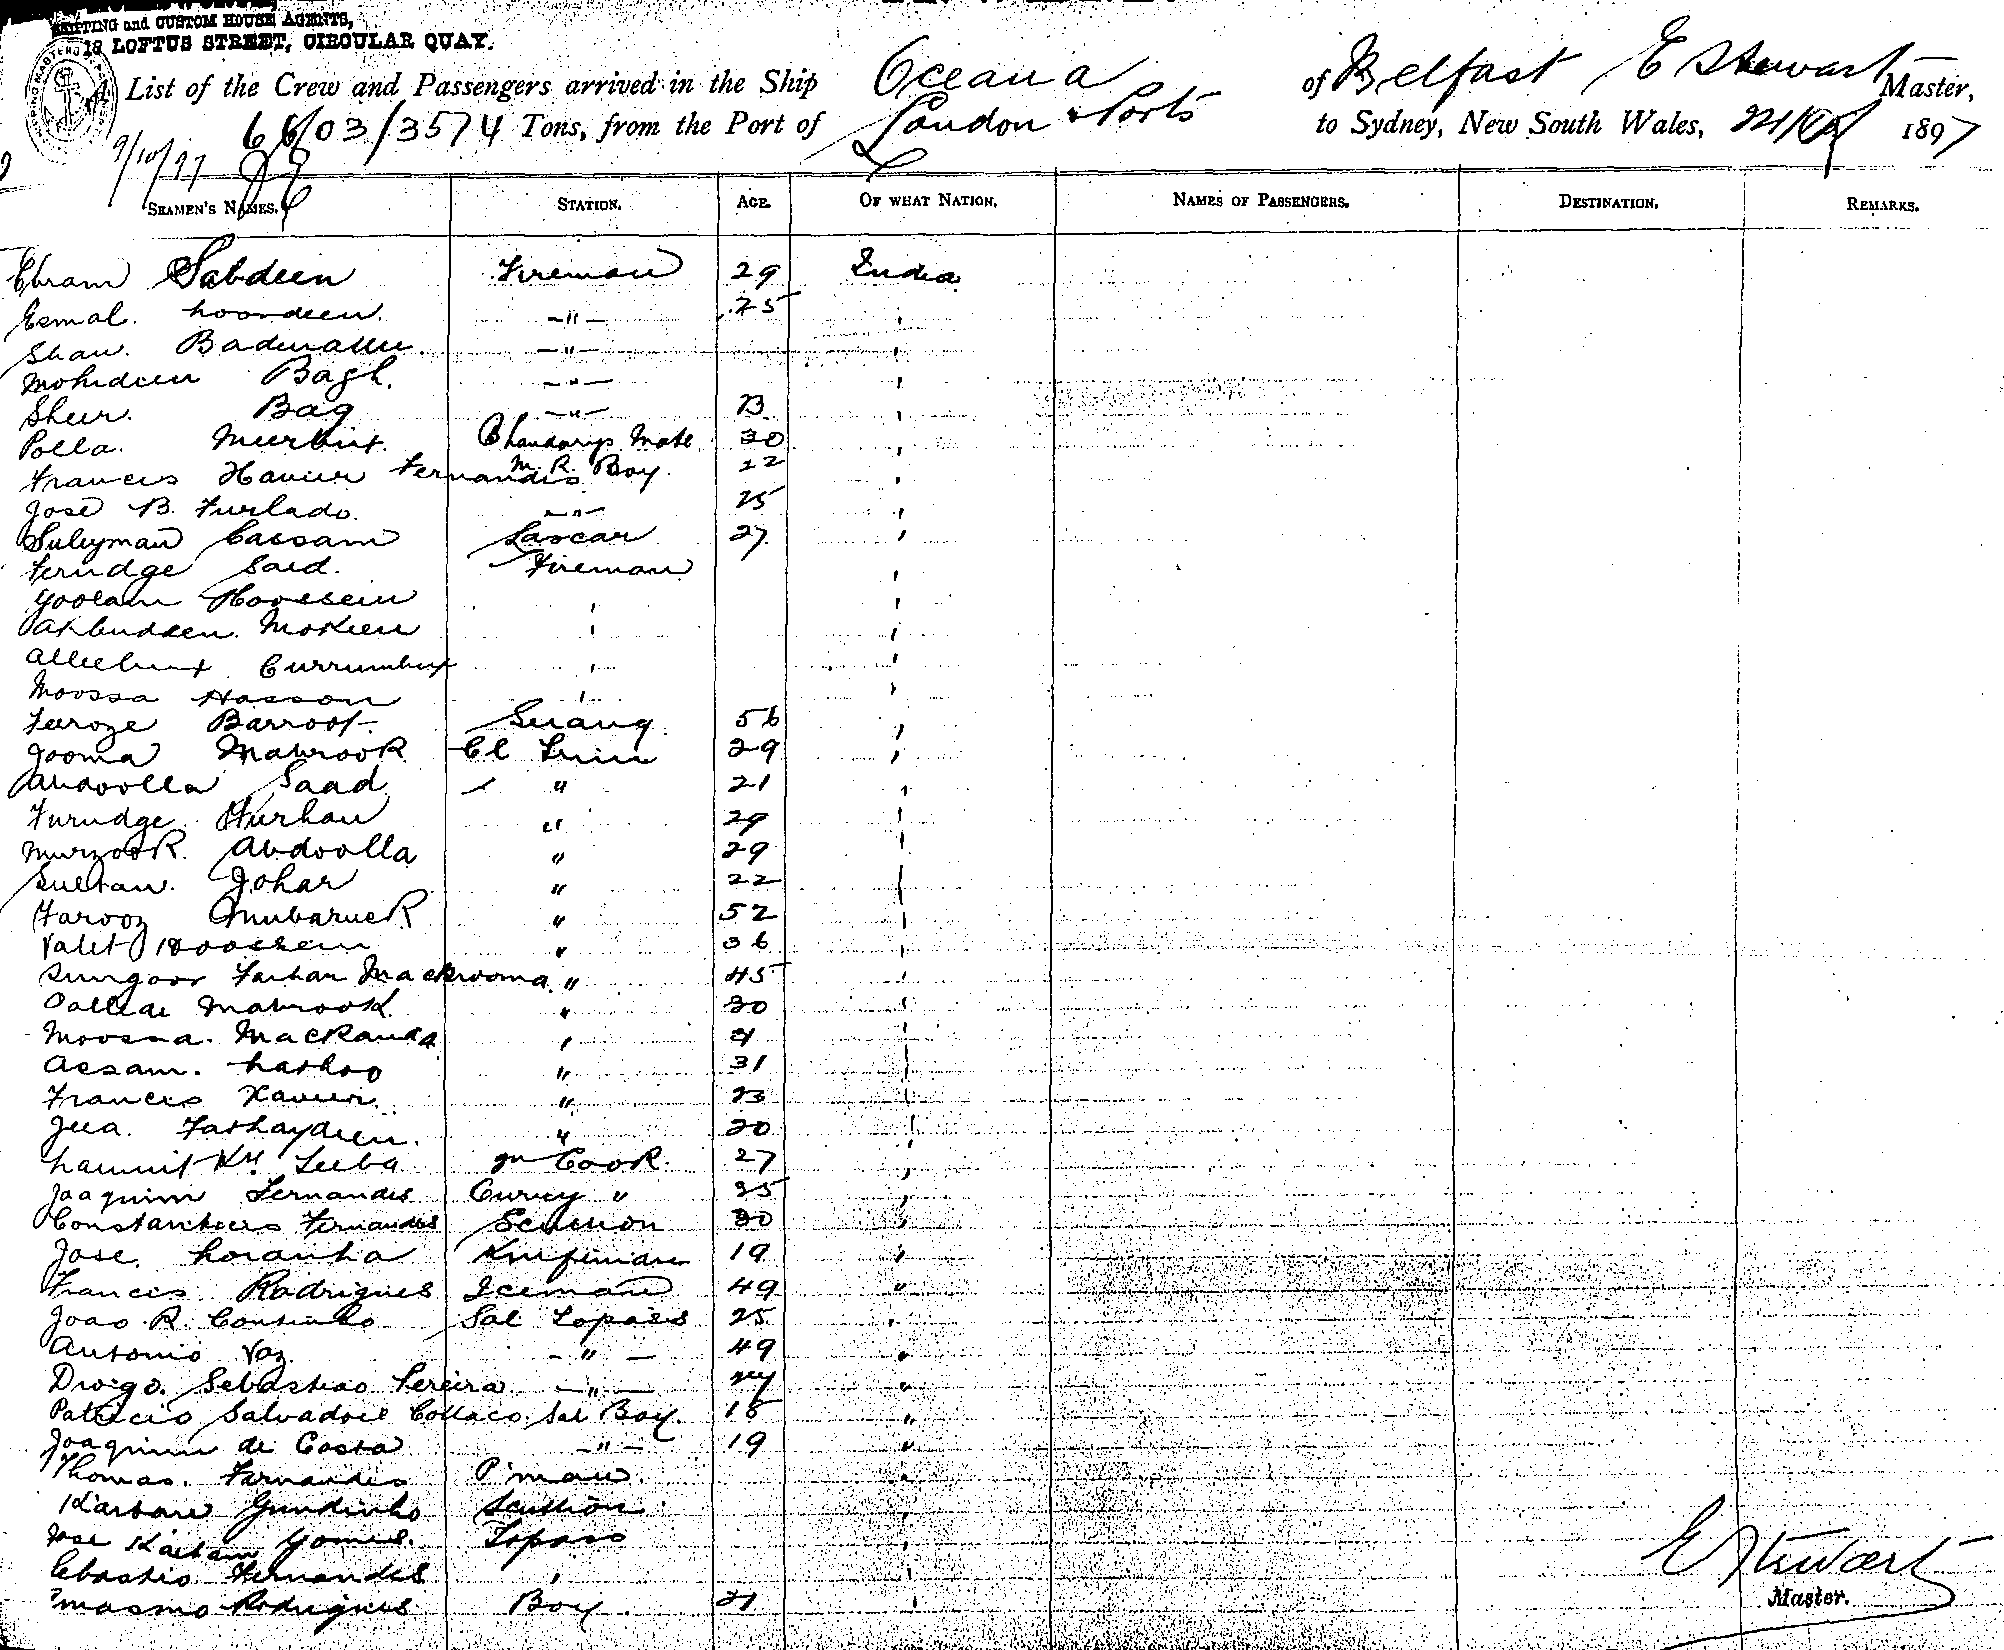 SHIPPING and CUSTOM HOUSE AGENTS,
18 LOFTUS STREET, CIRCULAR QUAY.
A List of the Crew and Passengers arrived in the Ship Oceana of Belfast E Stewart Master,
6603/3574 Tons, from the Port of London & Ports to Sydney, New South Wales, 1897
9/10/97
SEAMEN'S NAMES. STATION. AGE. OF WHAT NATION. NAMES OF PASSENGERS. DESTINATION. REMARKS.
Ebram Sabdeen Fireman 29 India
Esmal. Noordeen. -"- 25 "
Shaw. -"- "
Mohideen Bagh. -"- "
Sheer. Bag -"- "
Polla. Meerbux. Bhandarys Mate 30 "
Francis Xavier Fernandis M. R. Boy. 22 "
Jose B. Furlado. -"- 25 "
Suleyman Cassam Lascar 27 "
Ferudge Said. Fireman "
Goolam Hoossein " "
Mokeen " "
Alleebux Currumbux " "
Moossa Hasson " "
Feroze Barroot Serang 56 "
Jooma Mabrook Cl 29 "
Abdoolla Saad " 21 "
Furudge Furhan " 29 "
Murzook. Abdoolla " 29 "
Sultan. Johar " 22 "
Farooz Mubaruck " 52 "
Valet Hoossein " 36 "
Sungoor Farhan Mackrooma " 45 "
Mabrook " 30 "
Moossa. Mackanda " "
Assam. Nathoo " 31 "
Francis Xavier. " 23 "
Jeea. " 20 "
Leeba Cook. 27 "
Joaquim Fernandes Curry " 35 "
Fernandes 30 "
Jose. Noranha Knifeman 19 "
Francis Rodrigues Iceman 49 "
Joao R. Continho Sal Topass 25 "
Antonio Vaz. -"- 49 "
Diogo. Sebastiao Pereira -"- "
Patricio Salvadore Collaco. Sal Boy. 18 "
Joaquim de Costa -"- 19 "
Thomas. Fernandes P'man. "
Kaitan Gundinho Scullion "
Jose Kaitan Gomes. Topass "
Fernandes " "
Rodrigues Boy. 21 "
E Stewart
Master.